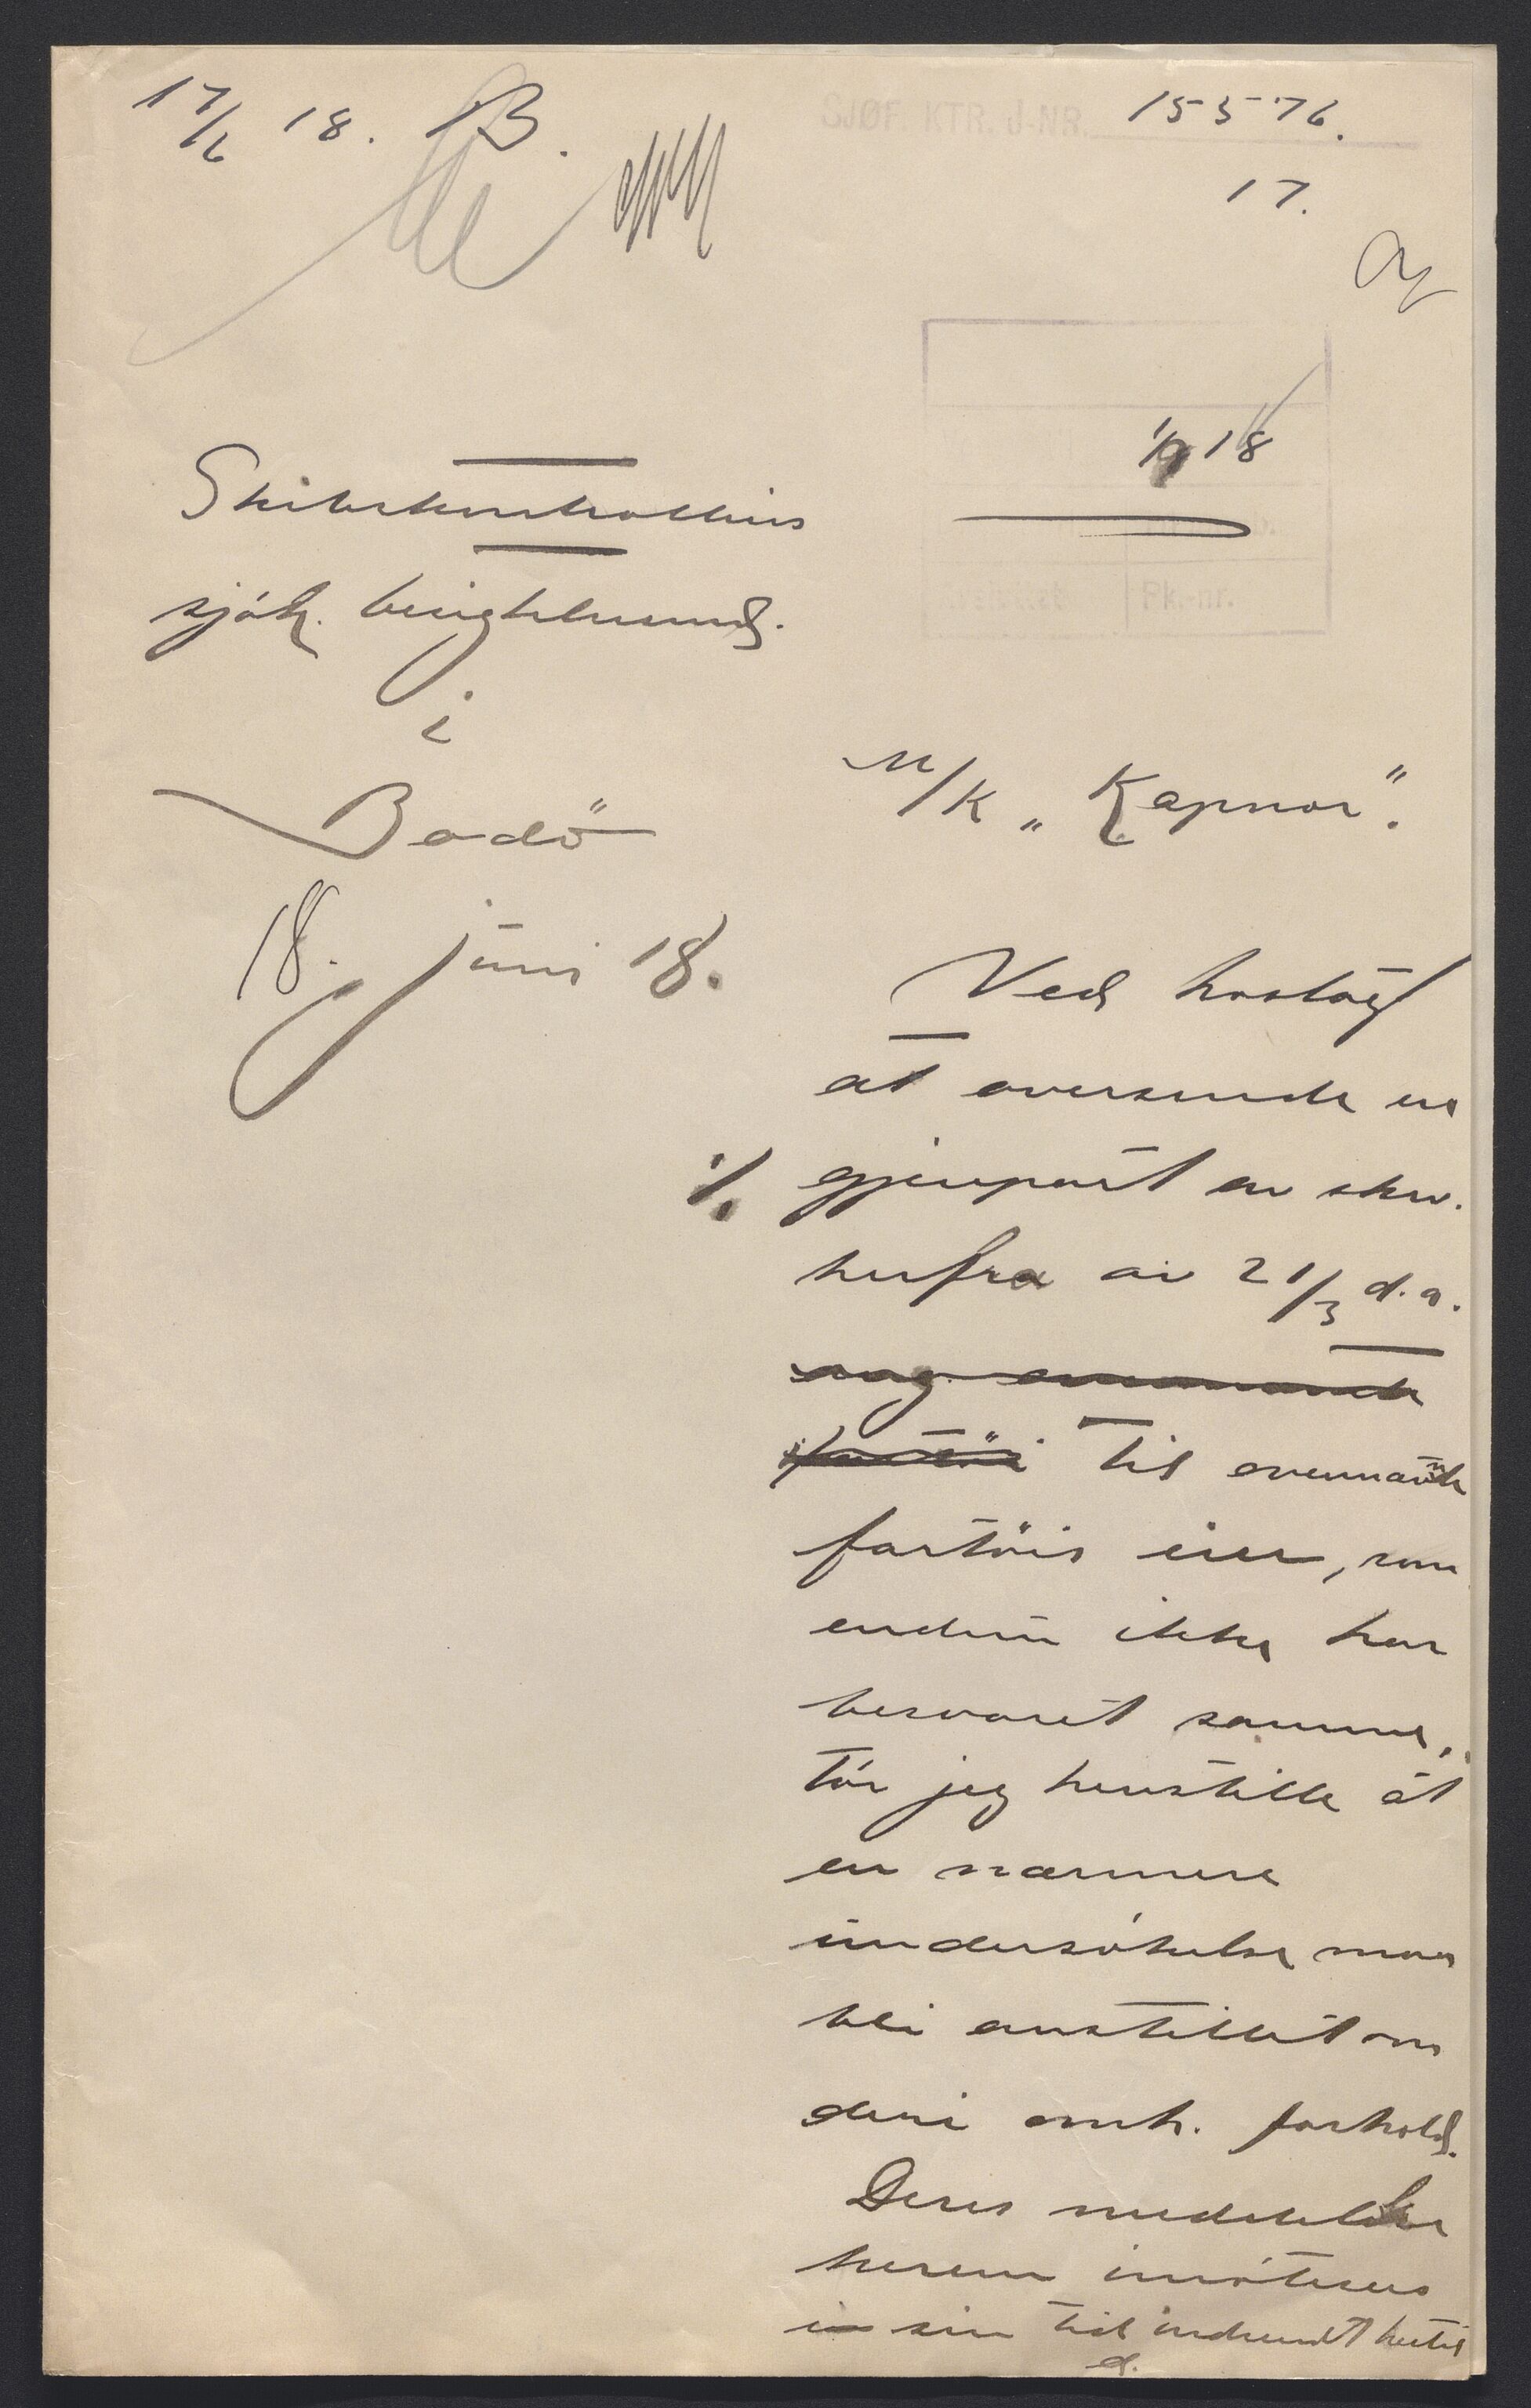 17/6 18. B.
SJØF KTR. J-NR. 15576.
17.
1/9 18
Pk.-nr.
Skibskontrollens
sjók. besigtelsesmd.
i
Bodö
18. juni 18.
M/K „Kapnor".
Ved hoslagt
at oversende en
./. gjenpart av skr.
herfra av 21/3 d.a.
ang. ovennævnte
fartöi til ovennævnte
fartöis eier, som
endnu ikke har
besvaret samme,
tör jeg henstille at
en nærmere
undersökelse maa
bli anstillet om
deri omh. forhold.
Deres meddelelse
herom imötesees
i sin tid indsendt hertil
d.